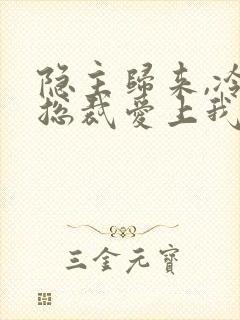 隐主歸来,冷
总裁爱上我
三金元寶